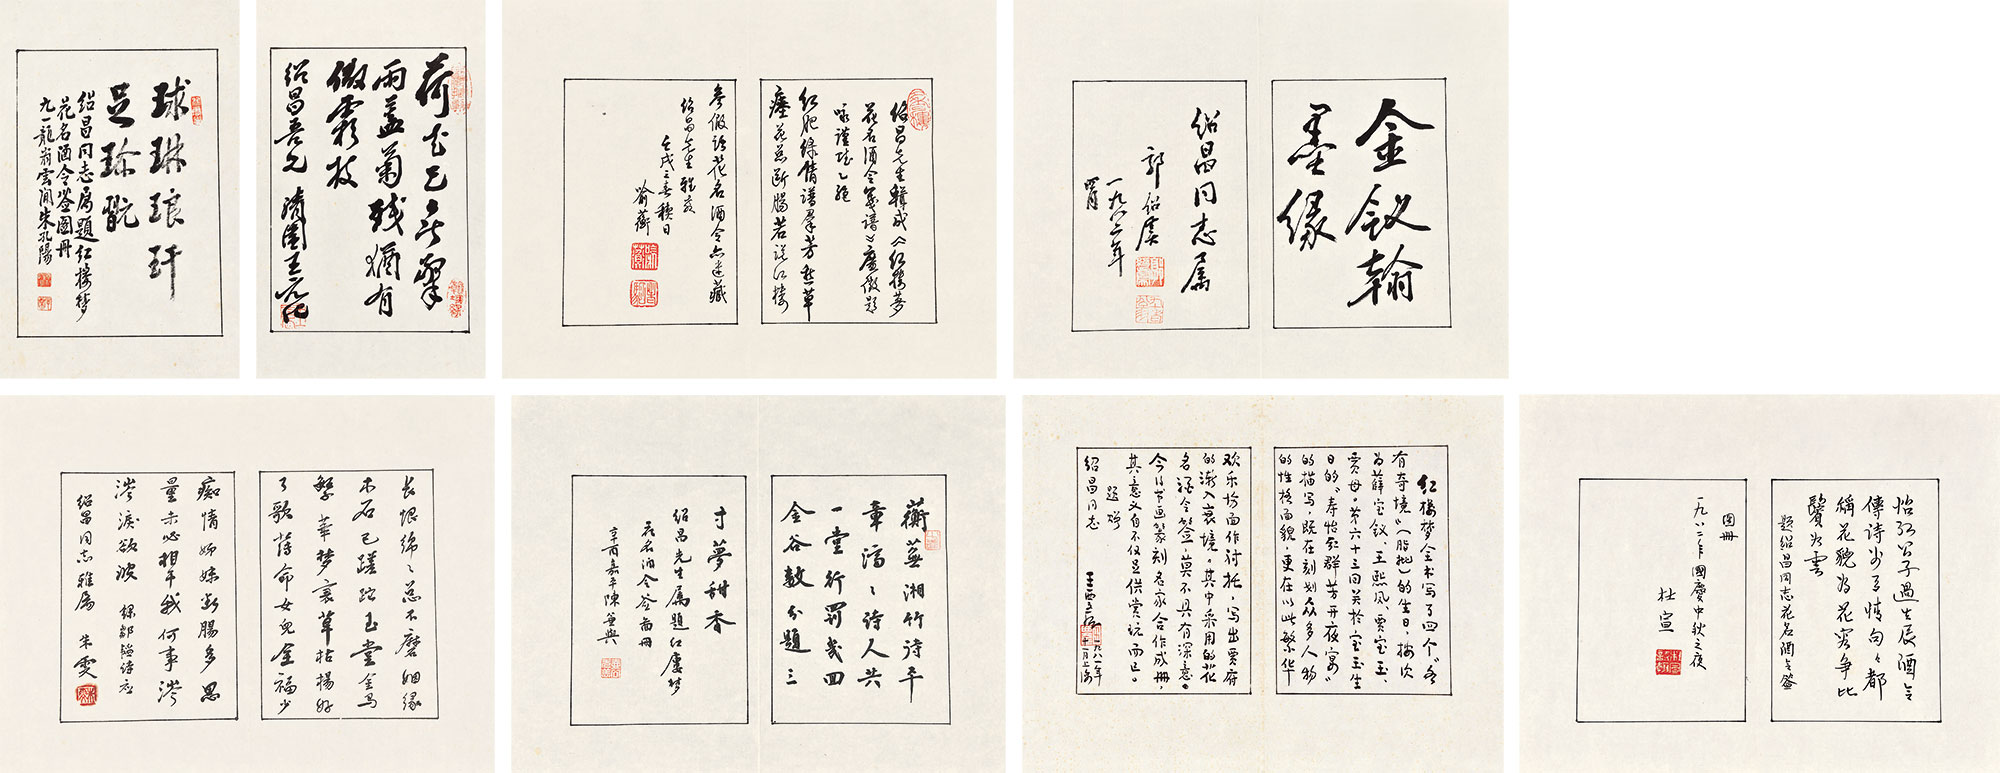 球琳琅玕
足珍翫
绍昌同志属題红楼梦
花名酒令签图冊
九一龍翁雲间朱孔陽
荷尽已无擎
雨盖菊残猶有
傲霜枝
绍昌吾兄 清園王元化
绍昌先生辑成《红楼梦
花名酒令笺谱》广徵题
咏谨赋一绝
红肥绿倩谱羣芳
瘞花总断腸若说红楼
參假語花名酒令亦迷藏
绍昌先生雅教
壬戌之春
喻蘅
金釵翰
墨缘
绍昌同志属
郭绍虞
一九八二年
四月
长恨绵々总不磨姻缘
木石已蹉跎玉堂金马
繁華梦裏草枯楊好
了歌薄命女兒金福少
痴情姊妹断腸多愚
量未必相干我何事滂
滂淚欲波
绍昌同志雅属 朱雯
蘅蕪湘竹诗平
章濟々诗人共
一堂行罰或四
金谷數分題三
寸夢甜香
绍昌先生属题红廔梦
花名酒令签畫冊
辛酉嘉平陳兼與
红楼梦全书写了四个“各
有奇境”（脂批）的生日，按次
为薛宝钗、王熙凤、贾宝玉、
贾母。第六十三回关於宝玉生
日的“寿怡红群芳开夜宴”
的描写，既在刻划众多人物
的性格面貌，更在以此繁华
欢乐场面作衬托，写出贾府
的渐入衰境。其中采用的花
名酒令签，莫不具有深意。
今以书画篆刻名家合作成冊，
其意义自不仅足供赏玩而已。
绍昌同志
一九八一年
十一月上海
怡红公子過生辰酒令
傳诗出了情句々都
稱花貌为花容争比
鬢为雲
题绍昌同志花名酒令签
图冊
一九八二年國慶中秋之夜
杜宣